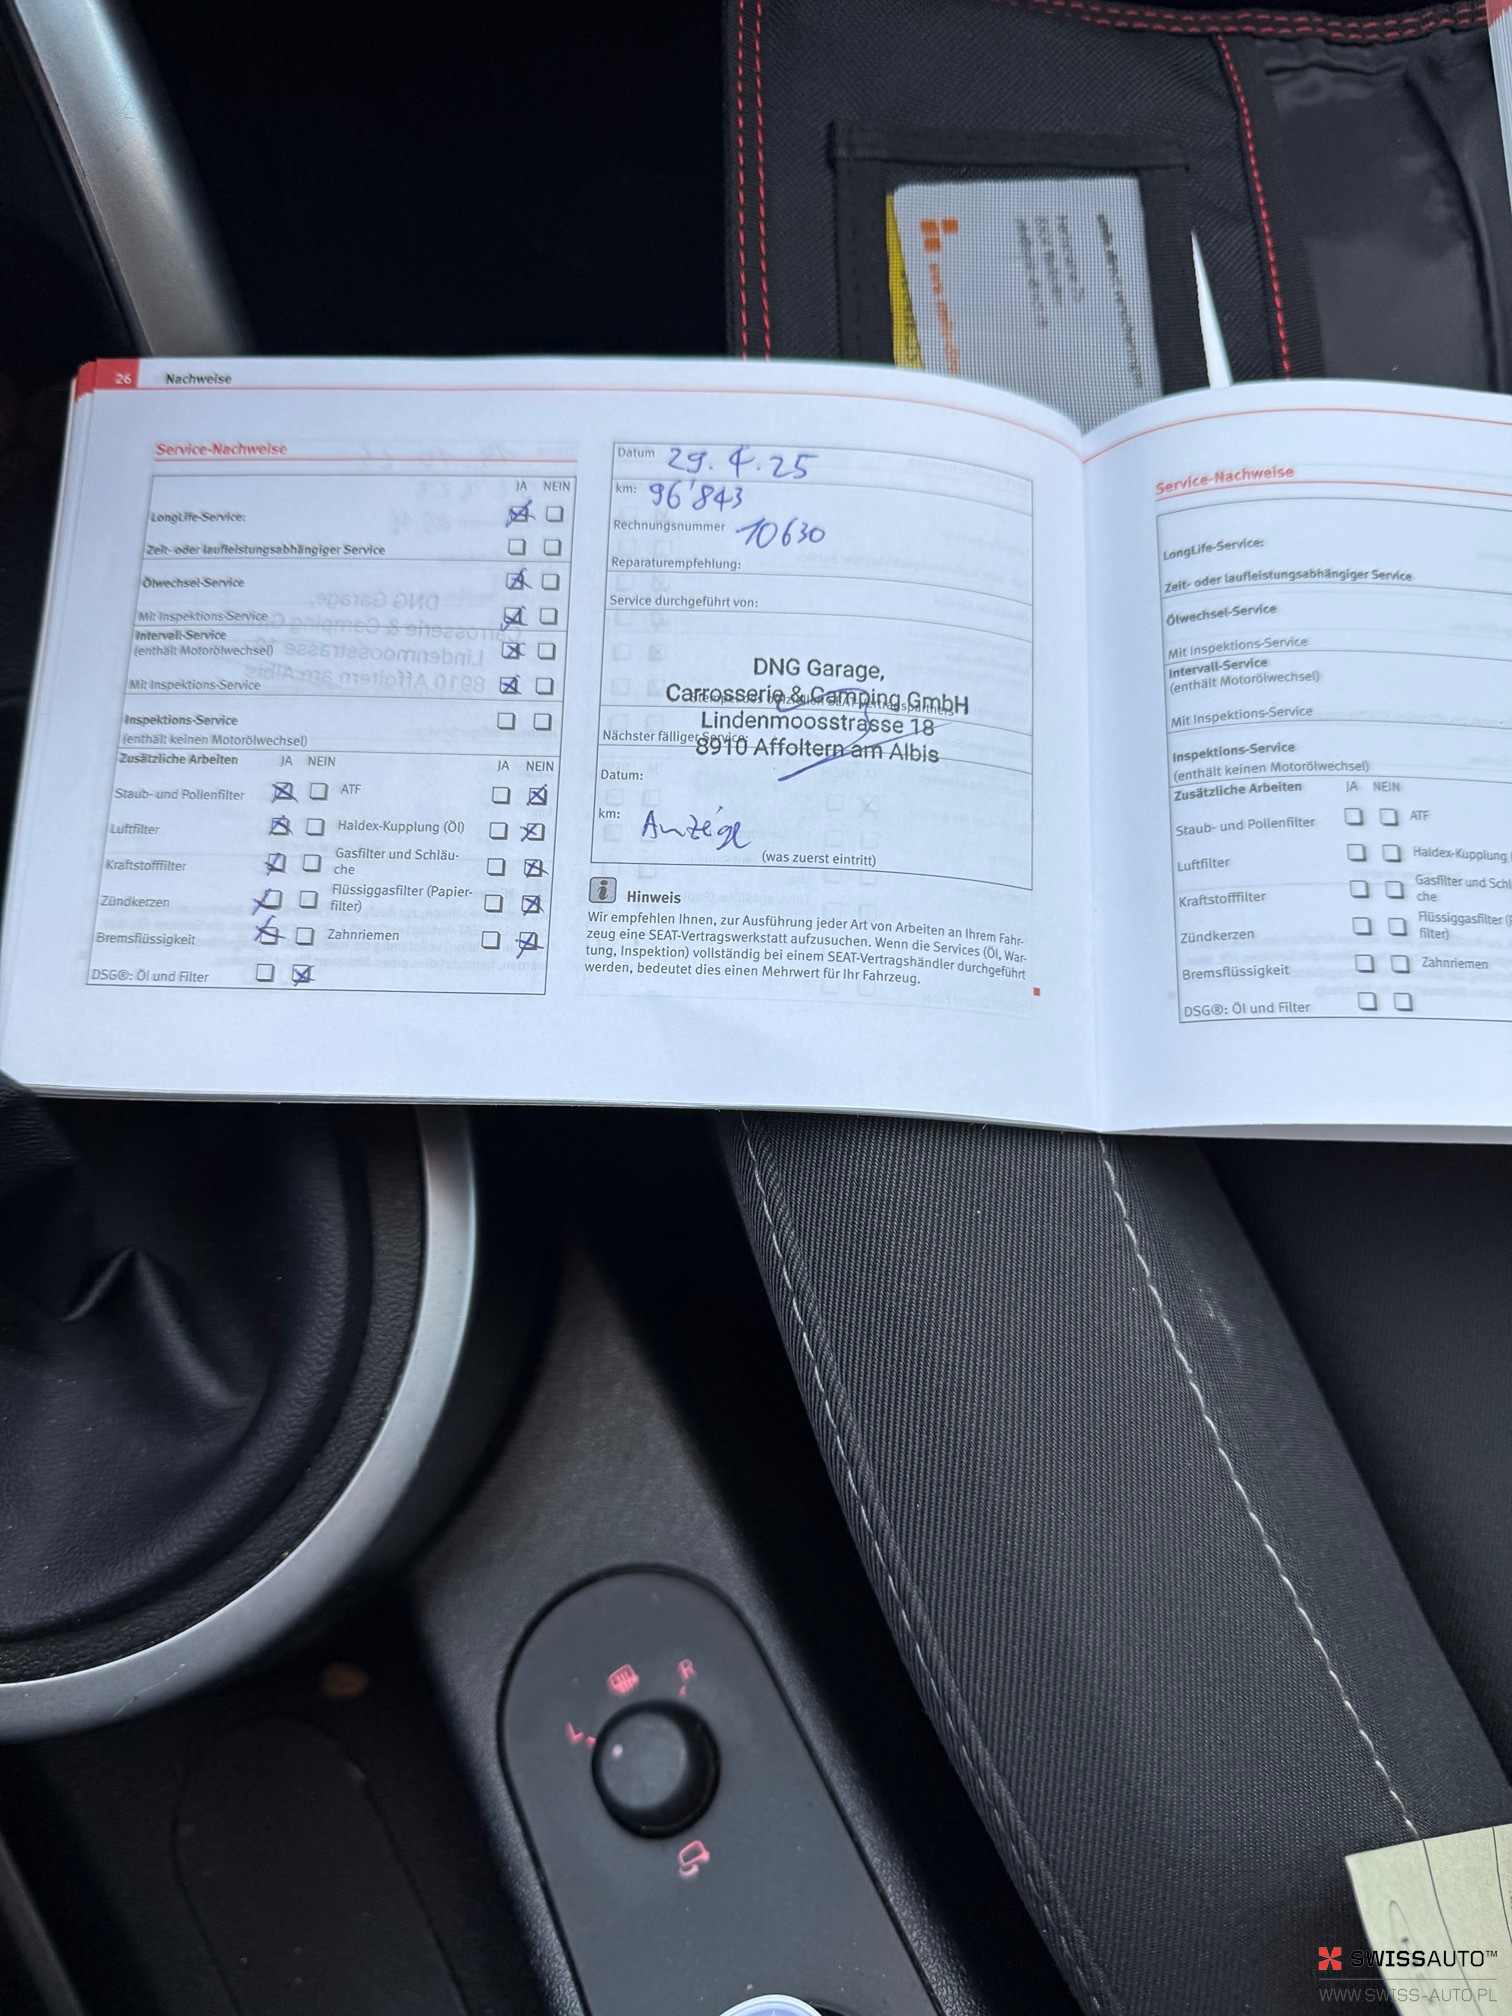 26 Nachweise
Service-Nachweise
JA NEIN
LongLife-Service:
Zeit- oder laufleistungsabhängiger Service
Ölwechsel-Service
Mit Inspektions-Service
Intervall-Service
(enthält Motorölwechsel)
Mit Inspektions-Service
Inspektions-Service
(enthält keinen Motorölwechsel)
Zusätzliche Arbeiten JA NEIN JA NEIN
Staub- und Pollenfilter ATF
Luftfilter Haldex-Kupplung (Öl)
Kraftstofffilter Gasfilter und Schläu-
che
Zündkerzen Flüssiggasfilter (Papier-
filter)
Bremsflüssigkeit Zahnriemen
DSG®: Öl und Filter
Datum 29.4.25
km: 96'843
Rechnungsnummer 10630
Reparaturempfehlung:
Service durchgeführt von:
DNG Garage,
Carrosserie & Camping GmbH
Lindenmoosstrasse 18
8910 Affoltern am Albis
Nächster fälliger Service:
Datum:
km: Anzeige
(was zuerst eintritt)
i Hinweis
Wir empfehlen Ihnen, zur Ausführung jeder Art von Arbeiten an Ihrem Fahr-
zeug eine SEAT-Vertragswerkstatt aufzusuchen. Wenn die Services (Öl, War-
tung, Inspektion) vollständig bei einem SEAT-Vertragshändler durchgeführt
werden, bedeutet dies einen Mehrwert für Ihr Fahrzeug.
Service-Nachweise
LongLife-Service:
Zeit- oder laufleistungsabhängiger Service
Ölwechsel-Service
Mit Inspektions-Service
Intervall-Service
(enthält Motorölwechsel)
Mit Inspektions-Service
Inspektions-Service
(enthält keinen Motorölwechsel)
Zusätzliche Arbeiten JA NEIN
Staub- und Pollenfilter ATF
Luftfilter Haldex-Kupplung
Kraftstofffilter Gasfilter und Schl
che
Zündkerzen Flüssiggasfilter
filter)
Bremsflüssigkeit Zahnriemen
DSG®: Öl und Filter
R
L
SWISSAUTO™
WWW.SWISS-AUTO.PL